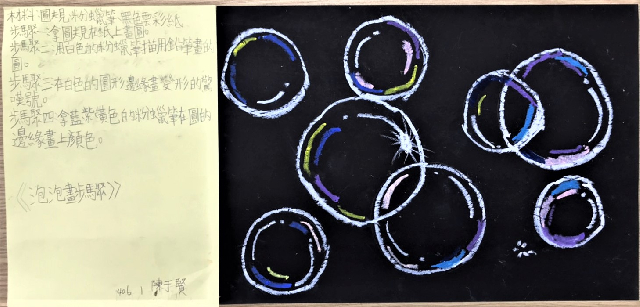 材料:圓規,粉蠟筆,黑色雲彩紙
步驟一:拿圓規在紙上畫圓。
步驟二:用白色的粉蠟筆描用鉛筆畫的
圓。
步驟三:在白色的圓形邊緣畫變形的驚
嘆號。
步驟四:拿藍紫黃色的粉蠟筆在圓的
邊緣畫上顏色。
《泡泡畫步驟》
406 1 陳于賢